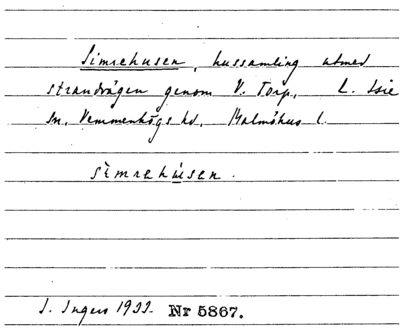 Simrehusen, hussamling utmed
strandvägen genom V. Torp, L. Isie
sn. Vemmenhögs hd, Malmöhus l.
sìmrehúsen.
I. Ingers 1933. Nr 5867.